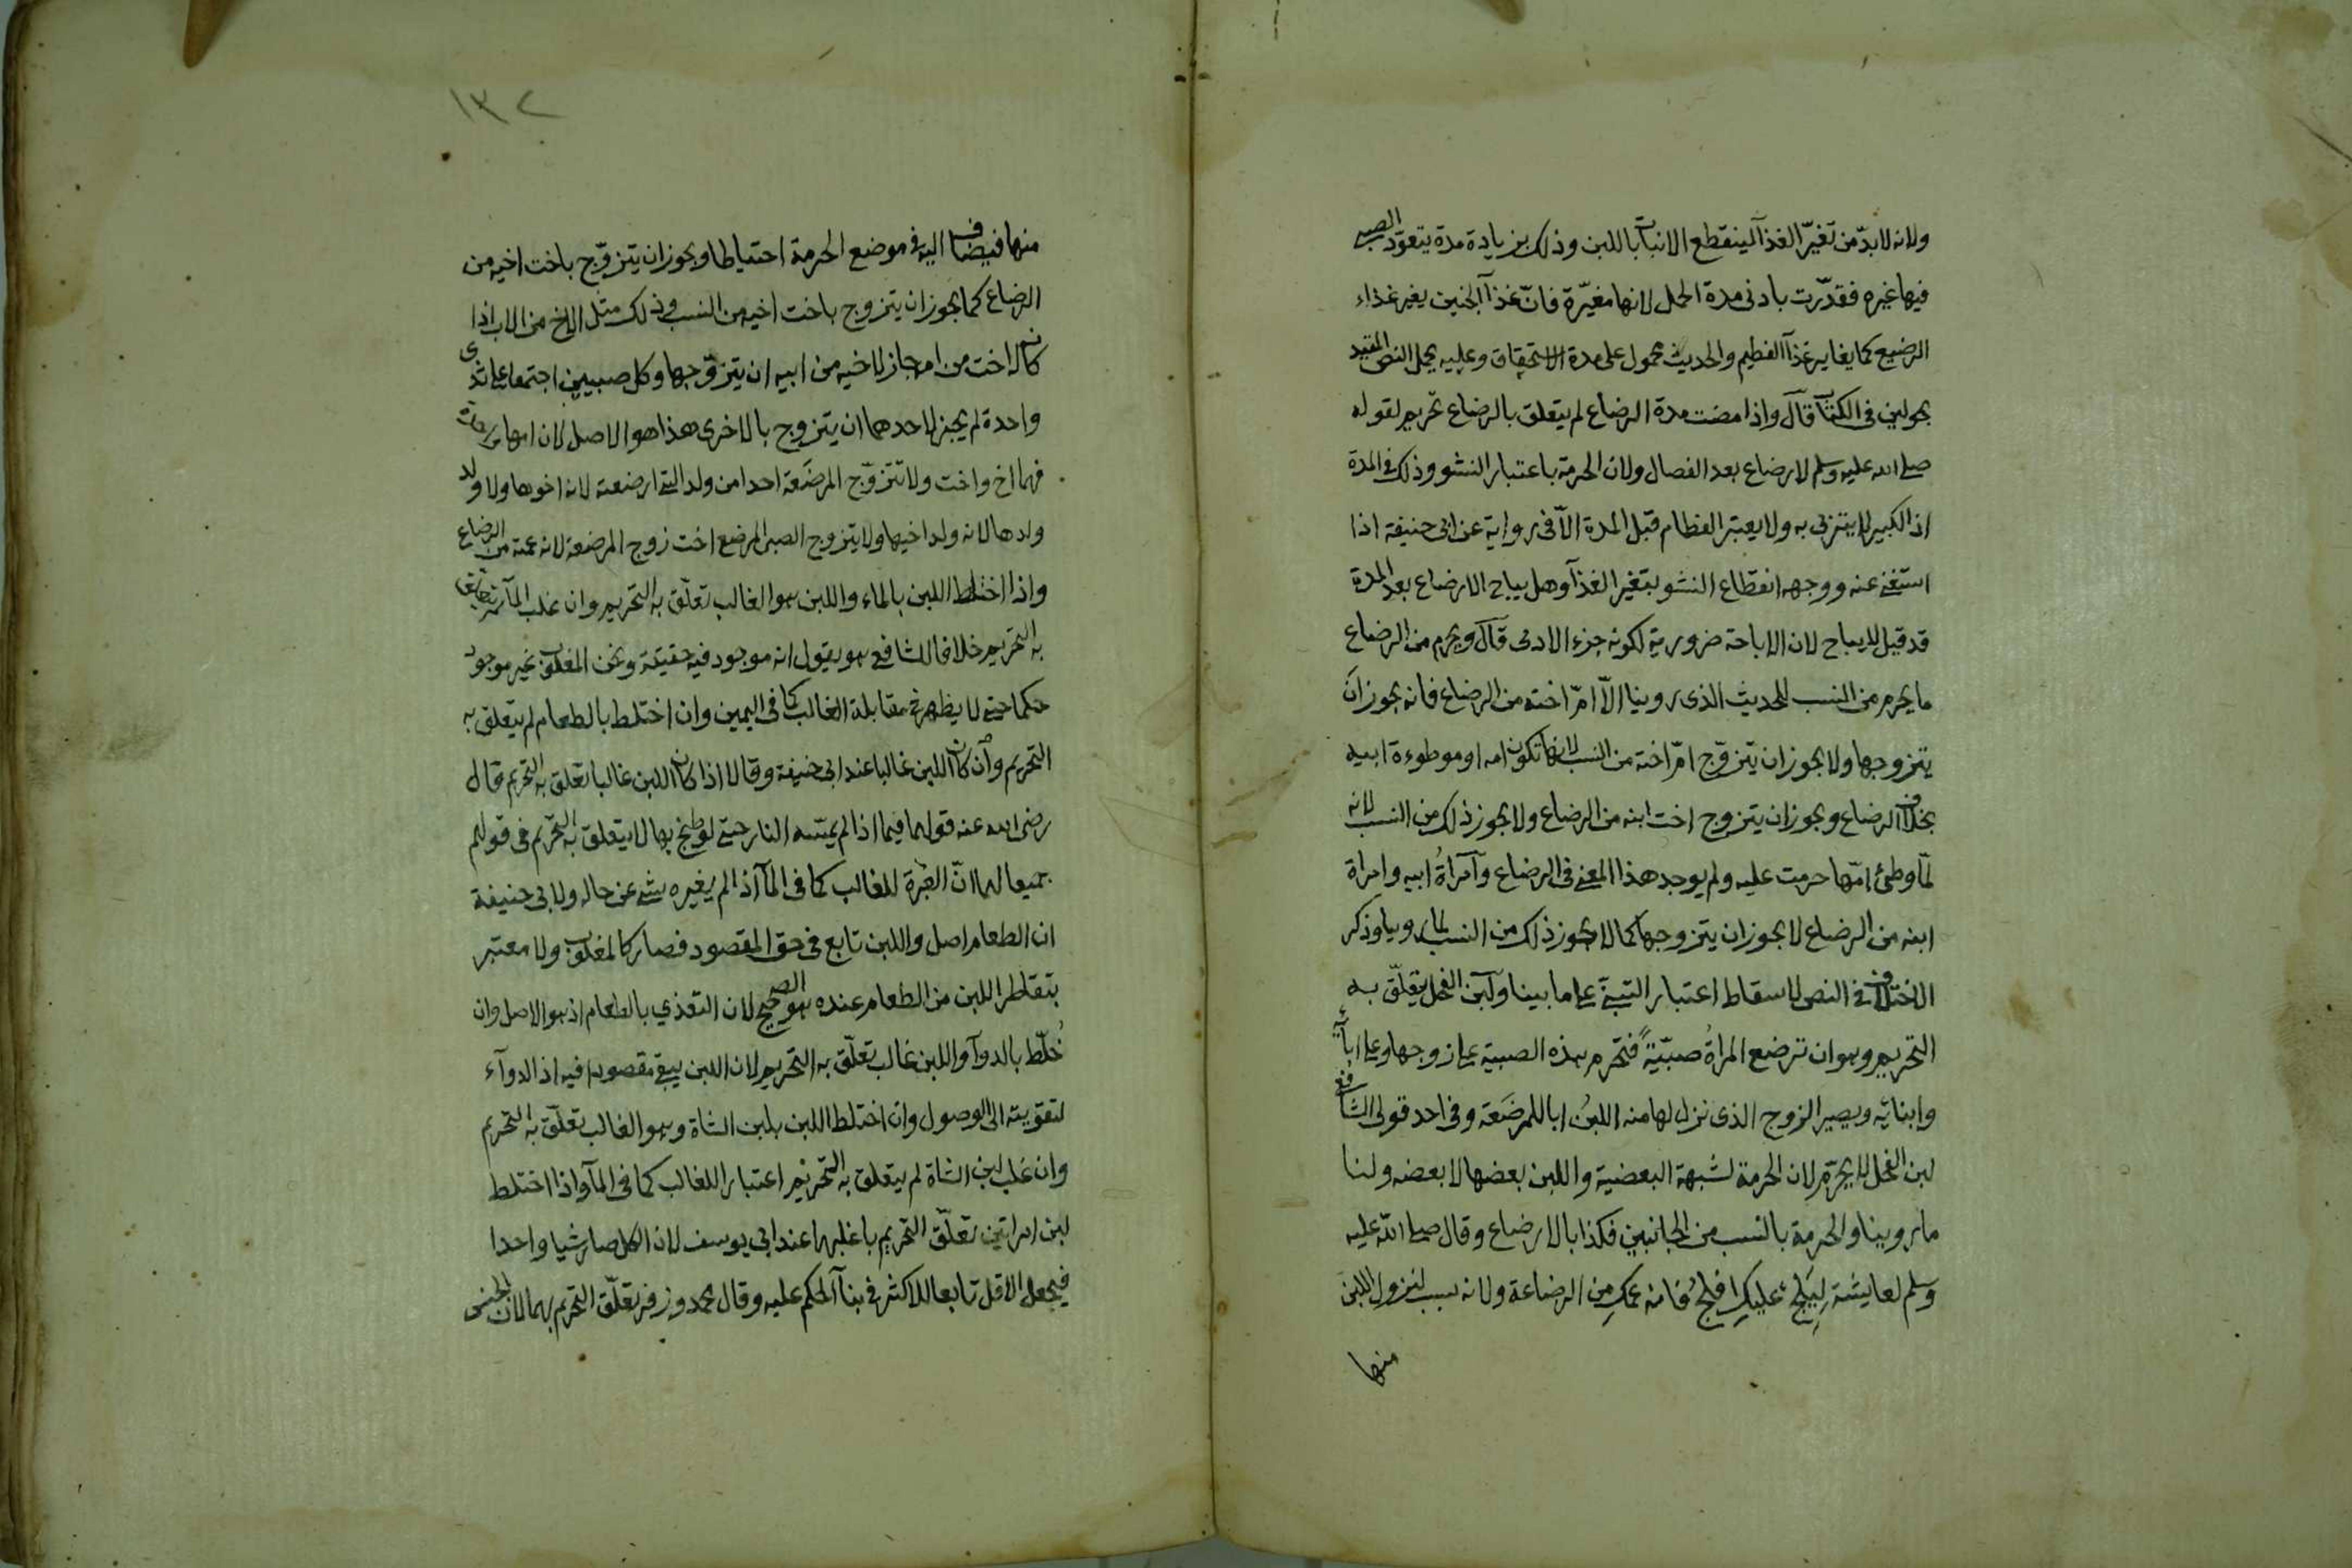 ولانه لابدّ من تغيّر الغذآ لينقطع الانبات باللبن وذلك بزيادة مدة يتعوّد الصبي
فيها غيره فقدّرت بادنى مدة الحمل لانها مغيّرة فانّ غذآ الجنين يغير غذاء
الرضيع كما يغاير غذآ الفطيم والحديث محمول على مدة الاستحقاق وعليه يحمل النص المقيد
بحولين فى الكتاب قال واذا مضت مدة الرضاع لم يتعلق بالرضاع تحريم لقوله
صلى الله عليه وسلم لا رضاع بعد الفصال ولان الحرمة باعتبار النشو وذلك فى المدة
اذ الكبير لا يتربى به ولا يعتبر الفطام قبل المدة الاّ فى رواية عن ابى حنيفة اذا
استغنى عنه ووجهه انقطاع النشو بتغير الغذآ وهل يباح الارضاع بعد المدة
قد قيل لا يباح لان الاباحة ضرورية لكونه جزء الادمى قال ويحرم من الرضاع
ما يحرم من النسب للحديث الذى روينا الاّ امّ اخته من الرضاع فانه يجوز ان
يتزوجها ولا يجوز ان يتزوّج امّ اخته من النسب لانها تكون امه او موطوءة ابيه
بخلاف الرضاع ويجوز ان يتزوج اخت ابنه من الرضاع ولا يجوز ذلك من النسب لانه
لمّا وطئ امّها حرمت عليه ولم يوجد هذا المعنى فى الرضاع وآمراةُ ابيه وامراة
ابنه من الرضاع لا يجوز ان يتزوجها كما لا يجوز ذلك من النسب لما روينا وذكر
الاختلاف فى النص لاسقاط اعتبار التبنّي على ما بينا ولبن الفحل يتعلّق به
التحريم وهو ان ترضع المراةُ صبيّةً فتحرم هذه الصبية على زوجها وعلى آبائه
وابنائه ويصير الزوج الذى نزل لها منه اللبنُ ابا للمرضَعة وفى احد قولى الشافعى
لبن الفحل لا يحرّم لان الحرمة لشبهة البعضية واللبن بعضها لا بعضه ولنا
ما روينا والحرمة بالنسب من الجانبين فكذا بالارضاع وقال صلى اللّه عليه
وسلم لعايشة لِيَلِجْ عليكِ افلحُ فانه عمكِ من الرضاعة ولانه سبب لنزول اللبن
منها
١٣٢
منها فيضاف اليه فى موضع الحرمة احتياطا ويجوز ان يتزوّج باخت اخيه من
الرضاع كما يجوز ان يتزوج باخت اخيه من النسب وذلك مثل الاخ من الاب اذا
كانت له اخت من امه جاز لاخيه من ابيه ان يتزوّجها وكل صبيين اجتمعا على ثدى
واحدة لم يجز لاحدهما ان يتزوج بالاخرى هذا هو الاصل لان امهما واحدة
فهما اخ واخت ولا تتزوّج المرضَعة احدا من ولد التى ارضعته لانه اخوها ولا ولد
ولدها لانه ولد اخيها ولا يتزوج الصبى المرضع اخت زوج المرضعة لانه عمته من الرضاع
واذا اختلط اللبن بالماء واللبن هو الغالب تعلّق به التحريم وان غلب المآء لم يتعلق
به التحريم خلافا للشافعى هو يقول انه موجود فيه حقيقة ونحن المغلوب غير موجود
حكما حتى لا يظهر فى مقابلة الغالب كما فى اليمين وان اختلط بالطعام لم يتعلق به
التحريم وان كان اللبن غالبا عند ابى حنيفة وقالا اذا كان اللبن غالبا تعلق به التحريم قال
رضى الله عنه قولهما فيما اذا لم يمسّه النار حتى لو طبخ بها لا يتعلق به التحريم فى قولهم
جميعا لهما انّ العبرة للغالب كما فى المآ اذا لم يغيره شى عن حاله ولابى حنيفة
ان الطعام اصل واللبن تابع فى حق المقصود فصار كالمغلوب ولا معتبر
بتقاطر اللبن من الطعام عنده هو الصحيح لان التغذي بالطعام اذ هو الاصل وان
خُلّط بالدوآ واللبن غالب تعلّق به التحريم لان اللبن يبقى مقصودا فيه اذ الدوآء
لتقويته الى الوصول وان اختلط اللبن بلبن الشاة وهو الغالب تعلّق به التحريم
وان غلب لبن الشاة لم يتعلق به التحريم اعتبارا للغالب كما فى المآ واذا اختلط
لبن امراتين تعلّق التحريم باغلبهما عند ابى يوسف لان الكل صار شيا واحدا
فيجعل الاقل تابعا للاكثر فى بنآ الحكم عليه وقال محمد وزفر تعلّق التحريم بهما لان الجنس